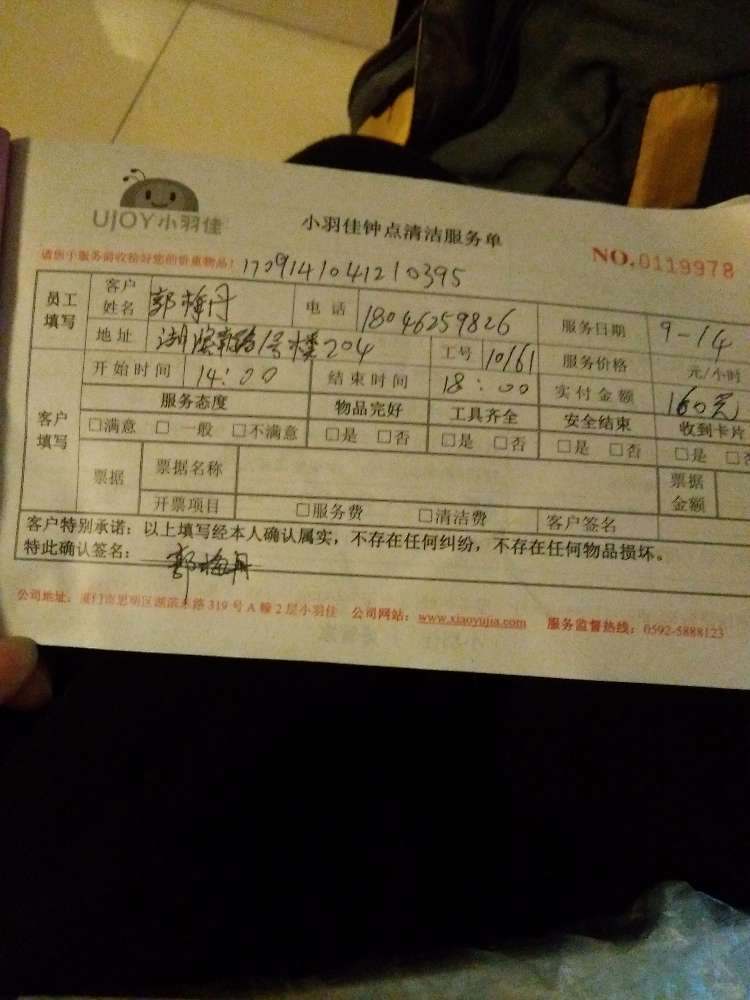 UJOY小羽佳
小羽佳钟点清洁服务单
NO.0119978
请您于服务前收拾好您的贵重物品！ 1709141041210395
员工填写 客户姓名 郭梅丹 电话 18046259826 服务日期 9-14
地址 1号楼204 工号 10161 服务价格 元/小时
客户填写 开始时间 14:00 结束时间 18:00 实付金额 160元
服务态度 物品完好 工具齐全 安全结束 收到卡片
□满意 □一般 □不满意 □是 □否 □是 □否 □是 □否 □是 □否
票据 票据名称 票据金额
开票项目 □服务费 □清洁费 客户签名
客户特别承诺：以上填写经本人确认属实，不存在任何纠纷，不存在任何物品损坏。
特此确认签名： 郭梅丹
公司地址：厦门市思明区湖滨东路319号A幢2层小羽佳 公司网站：www.xiaoyujia.com 服务监督热线：0592-5888123